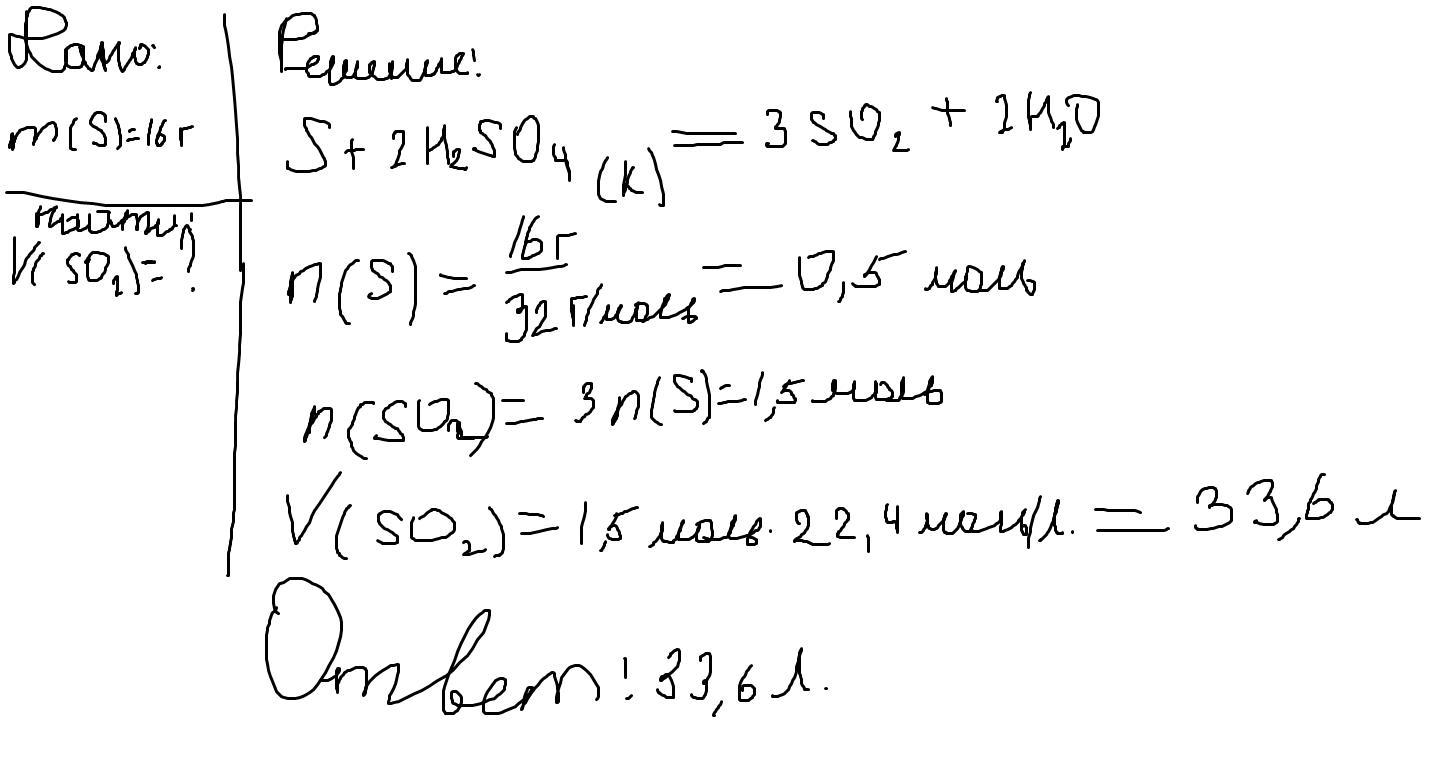 Дано:
m(S)=16 г
Найти:
V(SO₂)=?
Решение:
S + 2H₂SO₄ (к) = 3SO₂ + 2H₂O
n(S) = 16 г / 32 г/моль = 0,5 моль
n(SO₂) = 3n(S)=1,5 моль
V(SO₂)=1,5 моль · 22,4 моль/л. = 33,6 л
Ответ: 33,6 л.